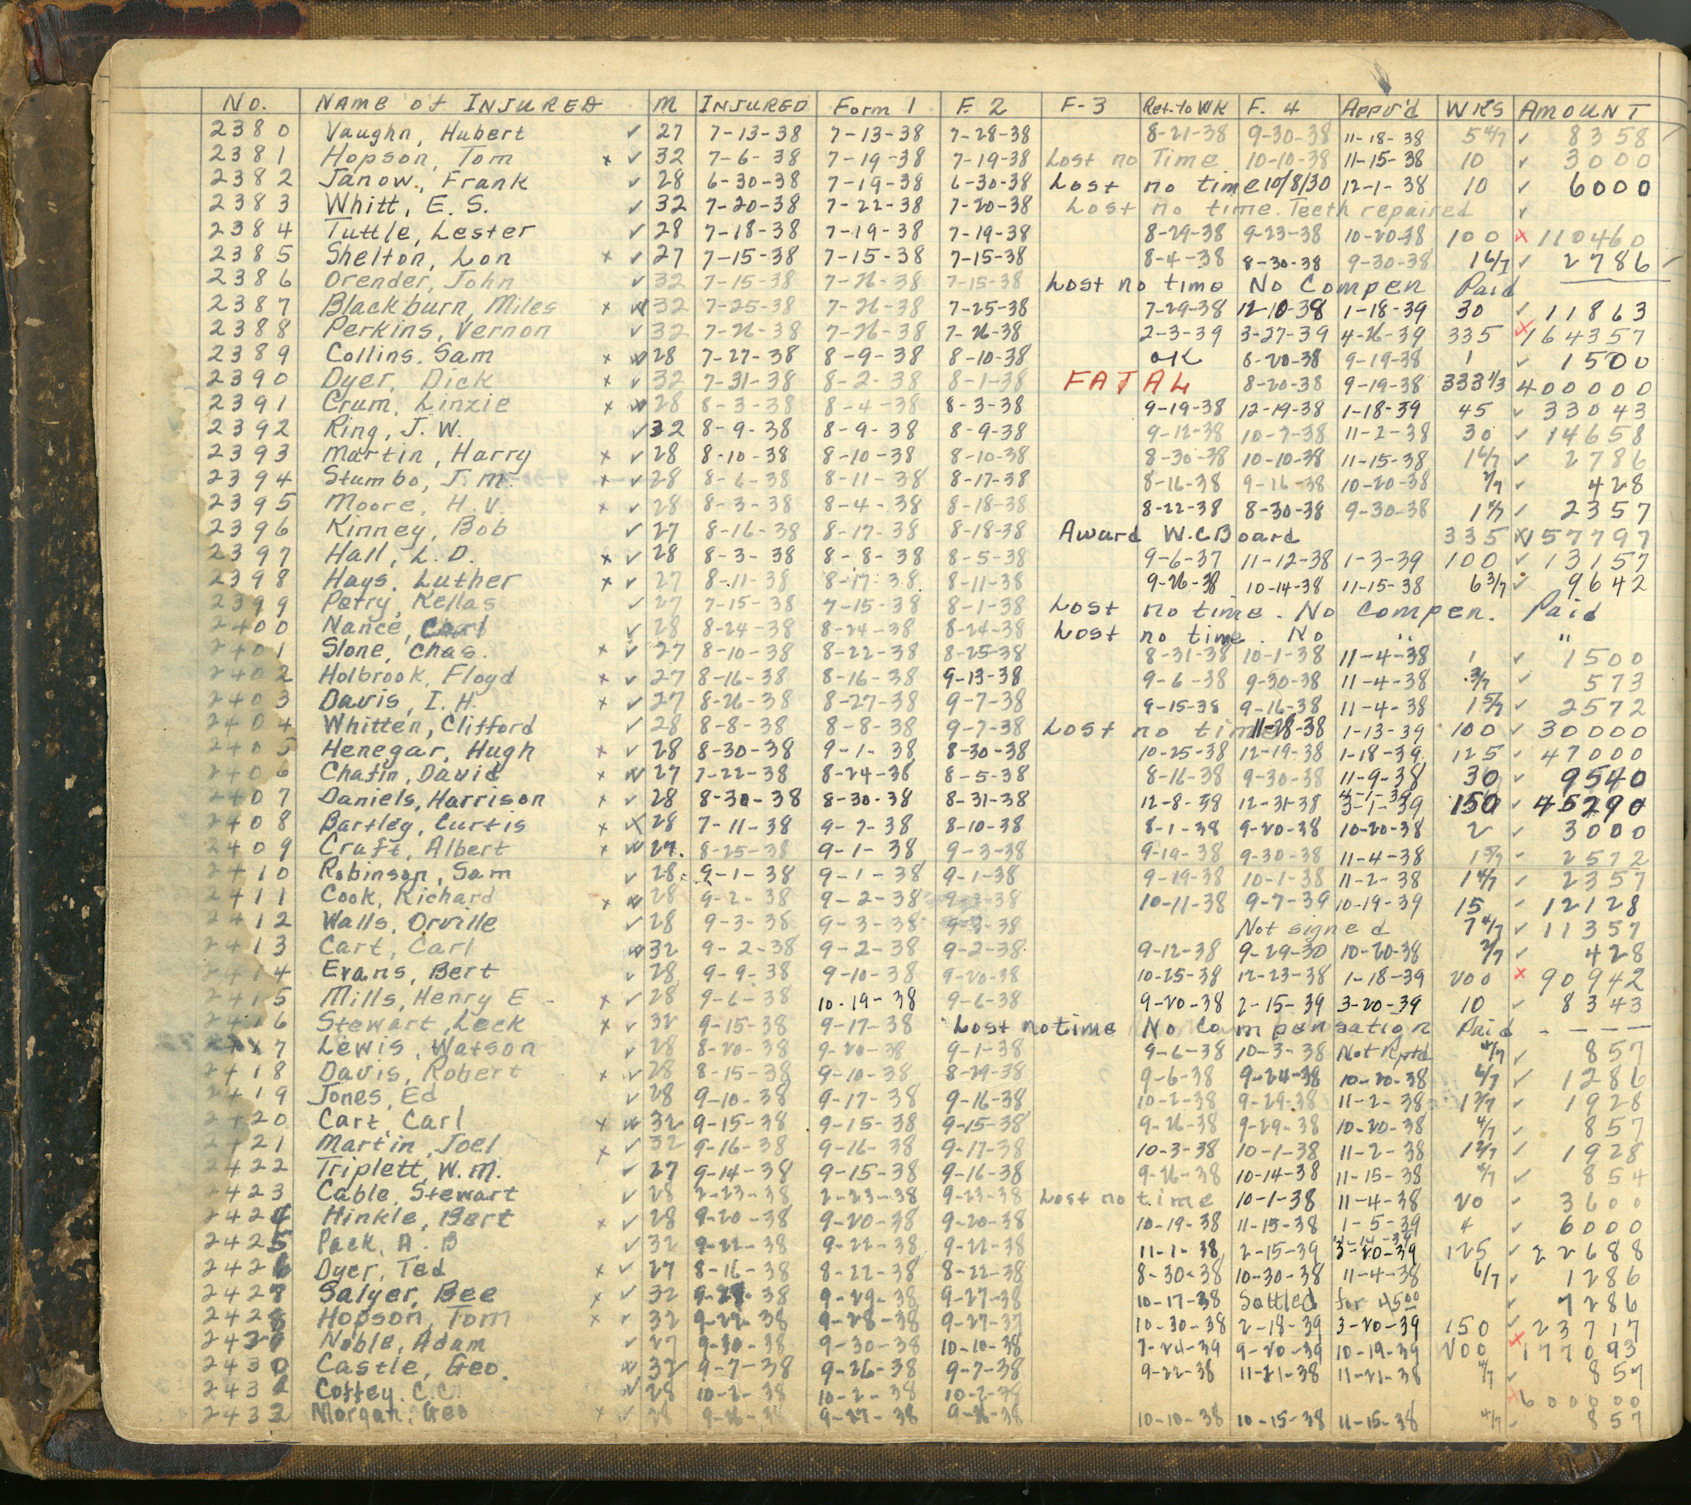 No. NAME of INJURED M INJURED Form 1 F. 2 F-3 Ret. to WK F. 4 Appv'd WKS AMOUNT
2380 Vaughn, Hubert ✓ 27 7-13-38 7-13-38 7-28-38 8-21-38 9-30-38 11-18-38 5 4/7 ✓ 8358
2381 Hopson, Tom x ✓ 32 7-6-38 7-19-38 7-19-38 Lost no Time 10-10-38 11-15-38 10 ✓ 3000
2382 Janow, Frank ✓ 28 6-30-38 7-19-38 6-30-38 Lost no time 10/8/30 12-1-38 10 ✓ 6000
2383 Whitt, E. S. ✓ 32 7-20-38 7-22-38 7-20-38 Lost no time. Teeth repaired ✓
2384 Tuttle, Lester ✓ 28 7-18-38 7-19-38 7-19-38 8-29-38 9-23-38 10-20-38 100 x 110460
2385 Shelton, Lon x ✓ 27 7-15-38 7-15-38 7-15-38 8-4-38 8-30-38 9-30-38 1 6/7 ✓ 2786
2386 Orender, John ✓ 32 7-15-38 7-26-38 7-15-38 Lost no time No Compen Paid
2387 Blackburn, Miles x 32 7-25-38 7-26-38 7-25-38 7-29-38 12-10-38 1-18-39 30 ✓ 11863
2388 Perkins, Vernon ✓ 32 7-26-38 7-26-38 7-26-38 2-3-39 3-27-39 4-26-39 335 x 164357
2389 Collins, Sam x 28 7-27-38 8-9-38 8-10-38 OK 8-20-38 9-19-38 1 ✓ 1500
2390 Dyer, Dick x ✓ 32 7-31-38 8-2-38 8-1-38 FATAL 8-20-38 9-19-38 333 1/3 400000
2391 Crum, Linzie x 28 8-3-38 8-4-38 8-3-38 9-19-38 12-19-38 1-18-39 45 ✓ 33043
2392 Ring, J. W. ✓ 32 8-9-38 8-9-38 8-9-38 9-12-38 10-7-38 11-2-38 30 ✓ 14658
2393 Martin, Harry x ✓ 28 8-10-38 8-10-38 8-10-38 8-30-38 10-10-38 11-15-38 1 6/7 ✓ 2786
2394 Stumbo, J. M. x ✓ 28 8-6-38 8-11-38 8-17-38 8-16-38 9-16-38 10-20-38 2/7 ✓ 428
2395 Moore, H. V. x ✓ 28 8-3-38 8-4-38 8-18-38 8-22-38 8-30-38 9-30-38 1 4/7 ✓ 2357
2396 Kinney, Bob ✓ 27 8-16-38 8-17-38 8-18-38 Award W.C Board 335 x 157797
2397 Hall, L. D. x ✓ 28 8-3-38 8-8-38 8-5-38 9-6-37 11-12-38 1-3-39 100 ✓ 13157
2398 Hays, Luther x ✓ 27 8-11-38 8-17-38 8-11-38 9-26-38 10-14-38 11-15-38 6 3/7 ✓ 9642
2399 Petry, Kellas ✓ 27 7-15-38 7-15-38 8-1-38 Lost no time. No Compen. Paid
2400 Nance, Carl ✓ 28 8-24-38 8-24-38 8-24-38 Lost no time. No " "
2401 Slone, Chas. x ✓ 27 8-10-38 8-22-38 8-25-38 8-31-38 10-1-38 11-4-38 1 ✓ 1500
2402 Holbrook, Floyd x ✓ 27 8-16-38 8-16-38 9-13-38 9-6-38 9-30-38 11-4-38 3/7 ✓ 573
2403 Davis, I. H. x ✓ 27 8-26-38 8-27-38 9-7-38 9-15-38 9-16-38 11-4-38 1 5/7 ✓ 2572
2404 Whitten, Clifford ✓ 28 8-8-38 8-8-38 9-7-38 Lost no time 11-28-38 1-13-39 100 ✓ 30000
2405 Henegar, Hugh x ✓ 28 8-30-38 9-1-38 8-30-38 10-25-38 12-19-38 1-18-39 125 ✓ 47000
2406 Chafin, David x 27 7-22-38 8-24-38 8-5-38 8-16-38 9-30-38 11-9-38 30 ✓ 9540
2407 Daniels, Harrison x ✓ 28 8-30-38 8-30-38 8-31-38 12-8-38 12-31-38 3-1-39 150 ✓ 45290
2408 Bartley, Curtis x 28 7-11-38 9-7-38 8-10-38 8-1-38 9-20-38 10-20-38 2 ✓ 3000
2409 Craft, Albert x 27. 8-25-38 9-1-38 9-3-38 9-19-38 9-30-38 11-4-38 1 5/7 ✓ 2572
2410 Robinson, Sam ✓ 28 9-1-38 9-1-38 9-1-38 9-19-38 10-1-38 11-2-38 1 4/7 ✓ 2357
2411 Cook, Richard x 28 9-2-38 9-2-38 9-2-38 10-11-38 9-7-39 10-19-39 15 ✓ 12128
2412 Walls, Orville ✓ 28 9-3-38 9-3-38 9-3-38 Not signed 7 4/7 ✓ 11357
2413 Cart, Carl 32 9-2-38 9-2-38 9-2-38 9-12-38 9-29-30 10-20-38 2/7 ✓ 428
2414 Evans, Bert ✓ 28 9-9-38 9-10-38 9-20-38 10-25-38 12-23-38 1-18-39 200 x 90942
2415 Mills, Henry E - x ✓ 28 9-6-38 10-19-38 9-6-38 9-20-38 2-15-39 3-20-39 10 ✓ 8343
2416 Stewart, Leck x ✓ 32 9-15-38 9-17-38 Lost no time No Compensation Paid - - - -
2417 Lewis, Watson ✓ 28 8-20-38 9-20-38 9-1-38 9-6-38 10-3-38 Not Rptd 4/7 ✓ 857
2418 Davis, Robert x ✓ 28 8-15-38 9-10-38 8-29-38 9-6-38 9-24-38 10-20-38 6/7 ✓ 1286
2419 Jones, Ed ✓ 28 9-10-38 9-17-38 9-16-38 10-2-38 9-29-38 11-2-38 1 2/7 ✓ 1928
2420 Cart, Carl x 32 9-15-38 9-15-38 9-15-38 9-26-38 9-29-38 10-20-38 4/7 ✓ 857
2421 Martin, Joel x ✓ 32 9-16-38 9-16-38 9-17-38 10-3-38 10-1-38 11-2-38 1 2/7 ✓ 1928
2422 Triplett, W. M. ✓ 27 9-14-38 9-15-38 9-16-38 9-26-38 10-14-38 11-15-38 4/7 ✓ 854
2423 Cable, Stewart ✓ 28 2-23-38 2-23-38 9-23-38 Lost no time 10-1-38 11-4-38 20 ✓ 3600
2424 Hinkle, Bert x ✓ 28 9-20-38 9-20-38 9-20-38 10-19-38 11-15-38 1-5-39 4 ✓ 6000
2425 Pack, A. B ✓ 32 9-22-38 9-22-38 9-22-38 11-1-38 2-15-39 3-20-39 125 ✓ 22688
2426 Dyer, Ted x ✓ 27 8-16-38 8-22-38 8-22-38 8-30-38 10-30-38 11-4-38 6/7 ✓ 1286
2427 Salyer, Bee x ✓ 32 9-29-38 9-29-38 9-27-38 10-17-38 Settled for 4500 ✓ 7286
2428 Hopson, Tom x ✓ 32 9-22-38 9-28-38 9-27-37 10-30-38 2-18-39 3-20-39 150 ✓ 23717
2429 Noble, Adam ✓ 27 9-30-38 9-30-38 10-10-38 7-24-39 9-20-39 10-19-39 200 x 177093
2430 Castle, Geo. 32 9-7-38 9-26-38 9-7-38 9-22-38 11-21-38 11-21-38 4/7 ✓ 857
2431 Coffey, C.C. 28 10-2-38 10-2-38 10-2-38 x 600000
2432 Morgan, Geo x ✓ 28 9-26-38 9-27-38 9-26-38 10-10-38 10-15-38 11-15-38 4/7 ✓ 857